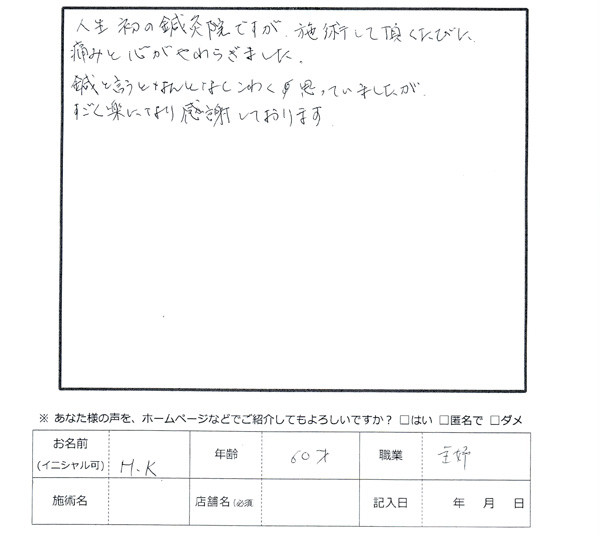 人生初の鍼灸院ですが、施術して頂くたびに、
痛みと心がやわらぎました。
鍼と言うとなんとなくこわく思っていましたが、
すごく楽になり感謝しております
※ あなた様の声を、ホームページなどでご紹介してもよろしいですか？ □はい □匿名で □ダメ
お名前 (イニシャル可) H.K 年齢 60才 職業 主婦
施術名 店舗名（必須 記入日 年 月 日